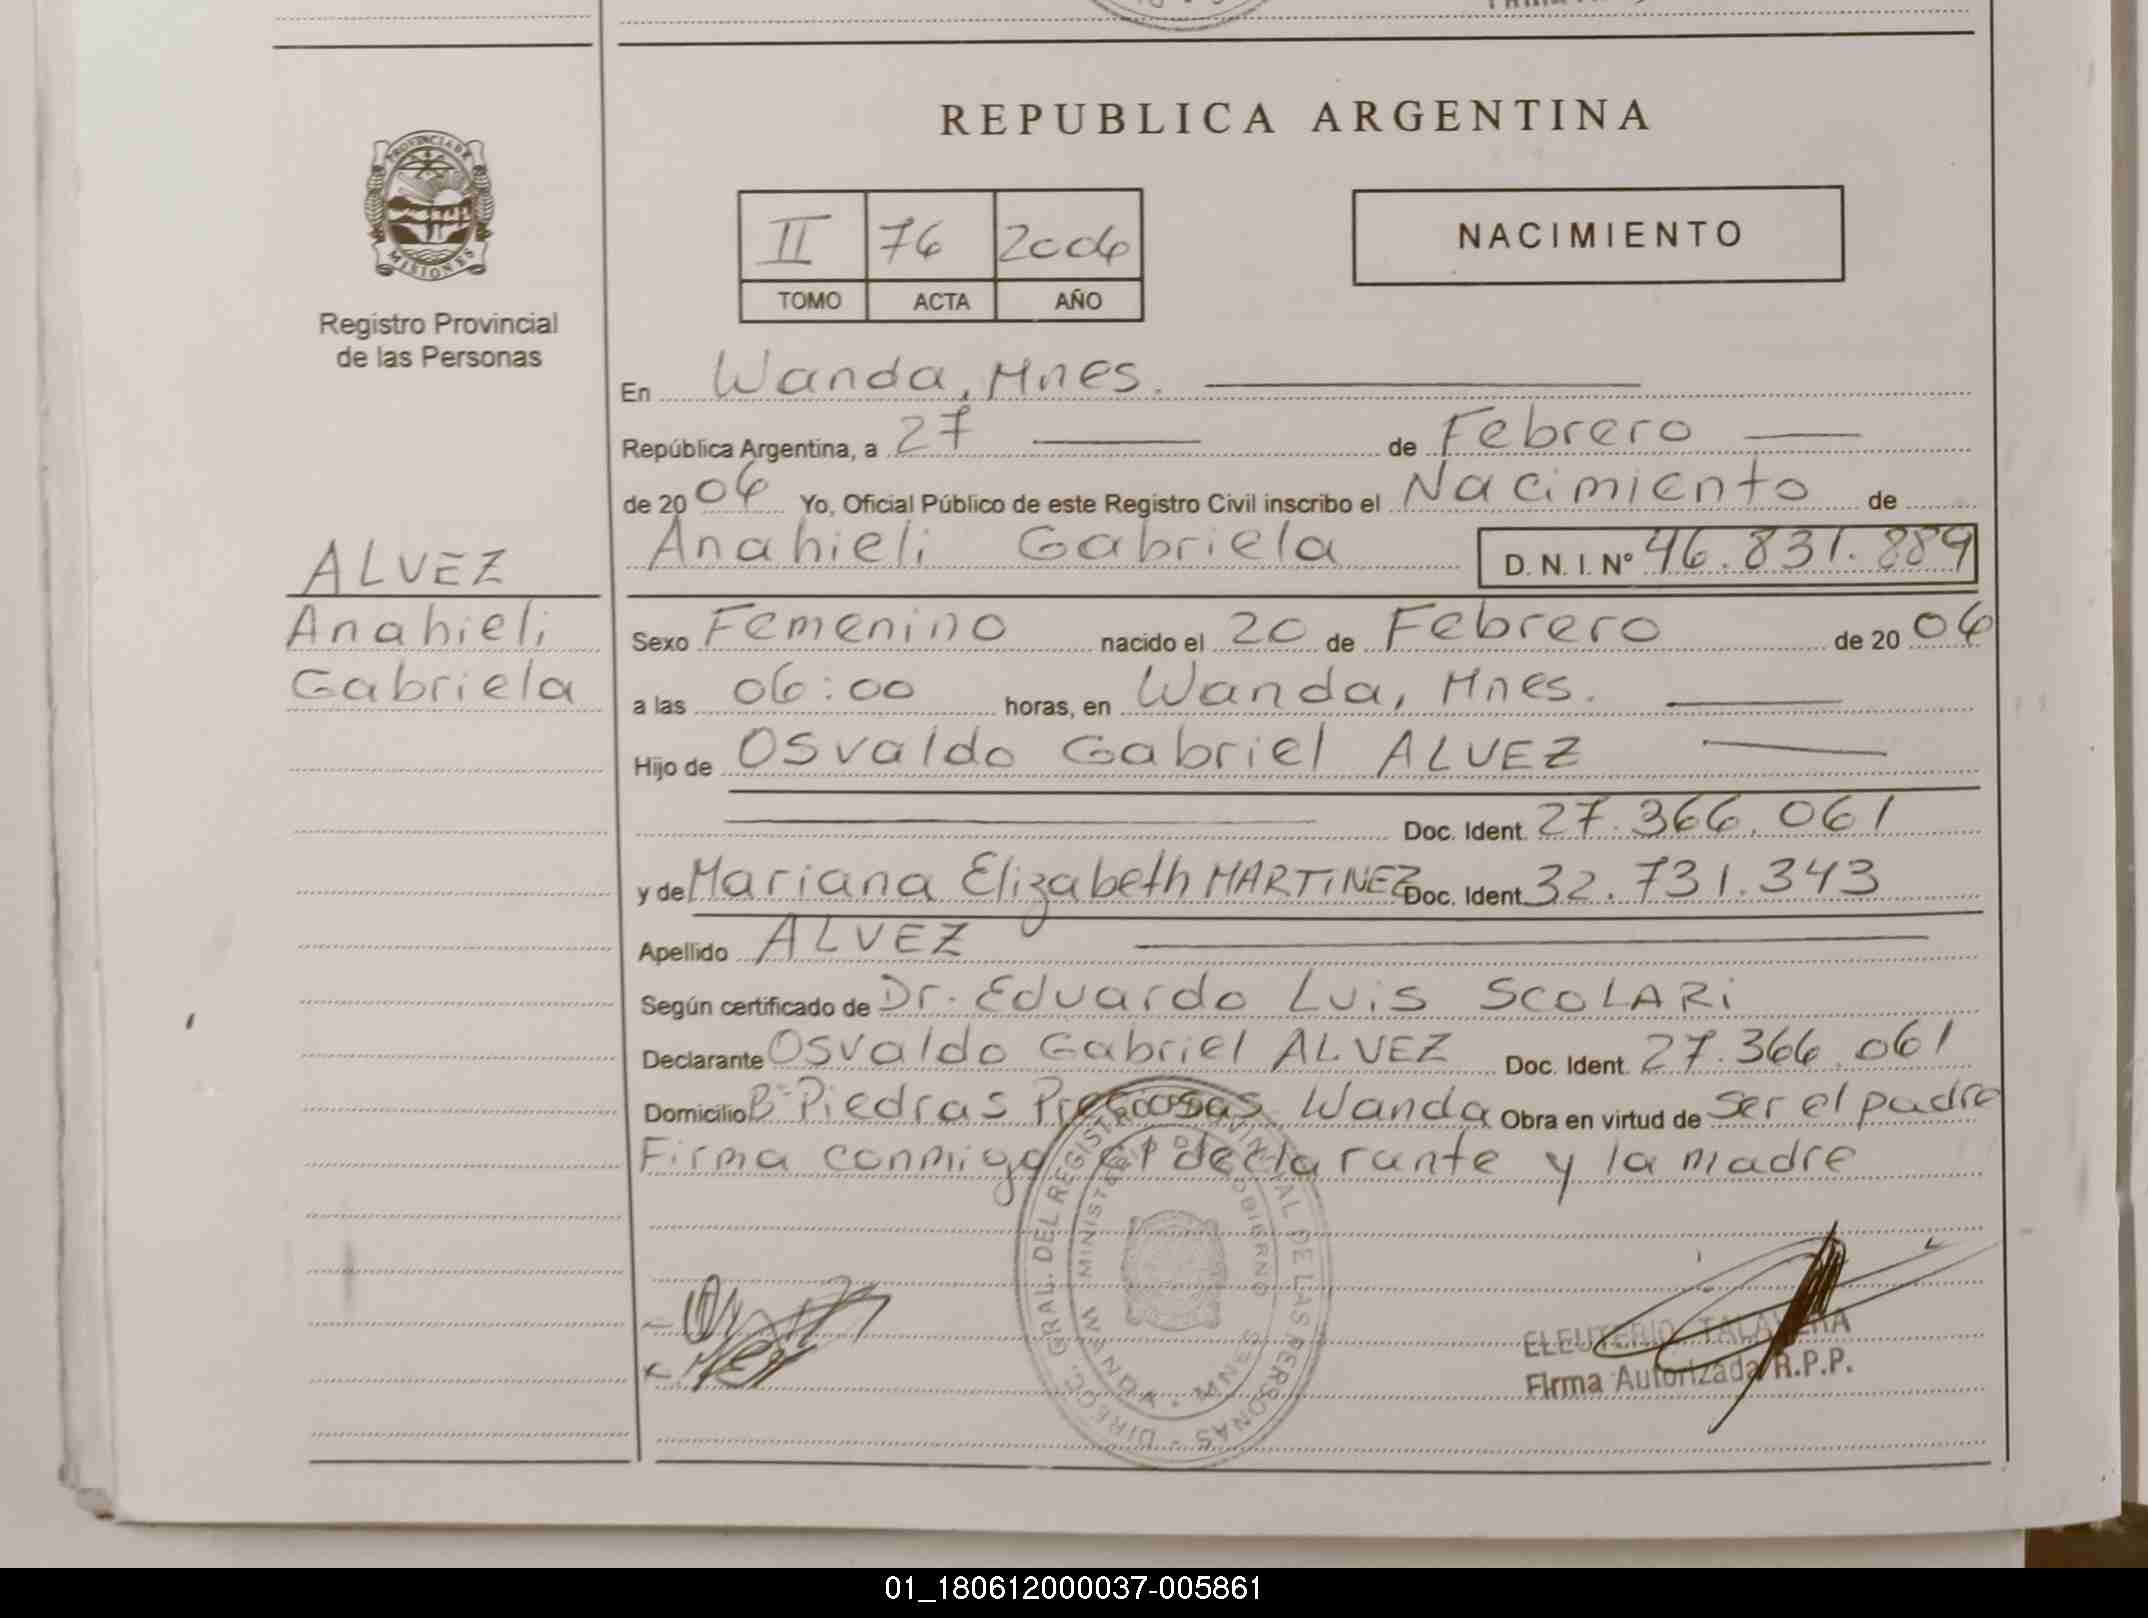 REPUBLICA ARGENTINA
PROVINCIA DE
MISIONES
Registro Provincial
de las Personas
II 76 2006
TOMO ACTA AÑO
NACIMIENTO
En Wanda, Mnes.
República Argentina, a 27 de Febrero
de 2006 Yo, Oficial Público de este Registro Civil inscribo el Nacimiento de
Anahieli Gabriela D. N. I. Nº 46.831.889
ALVEZ
Anahieli
Gabriela
Sexo Femenino nacido el 20 de Febrero de 2006
a las 06:00 horas, en Wanda, Mnes.
Hijo de Osvaldo Gabriel ALVEZ
Doc. Ident. 27.366.061
y de Mariana Elizabeth MARTiNEZ Doc. Ident. 32.731.343
Apellido ALVEZ
Según certificado de Dr. Eduardo Luis SCOLARi
Declarante Osvaldo Gabriel ALVEZ Doc. Ident. 27.366.061
Domicilio Bº Piedras Preciosas Wanda Obra en virtud de Ser el padre
Firma conmigo el declarante y la madre
DIRECC. GRAL. DEL REGISTRO PROVINCIAL DE LAS PERSONAS
MINISTERIO DE GOBIERNO
ELEUTERIO TALAVERA
Firma Autorizada R.P.P.
01_180612000037-005861